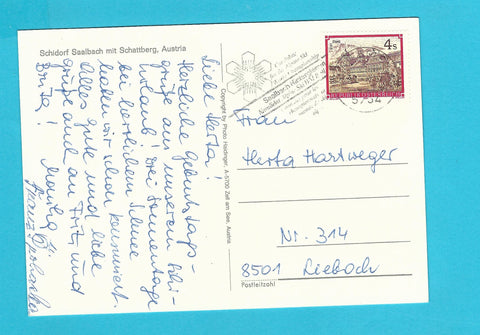 Schidorf Saalbach mit Schattberg, Austria
Liebe Herta!
Herzliche Geburtstags-
grüße aus unserem Schi-
urlaub! Drei Sonnentage
bei herrlichem Schnee
haben wir schon konsumiert.
Alles Gute und liebe
Grüße auch an Fritz und
Monika u.
Franz
Copyright by Photo Haidinger, A-5700 Zell am See, Austria
4 s
REPUBLIK ÖSTERREICH
Saalbach-Hinterglemm
5754
Frau
Herta Hartweger
Nr. 314
8501 Lieboch
Postleitzahl